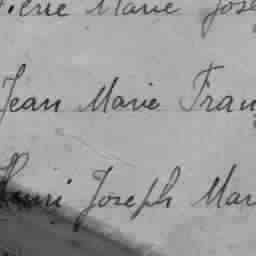 Pierre Marie Jose
Jean Marie Fran
Henri Joseph Mar